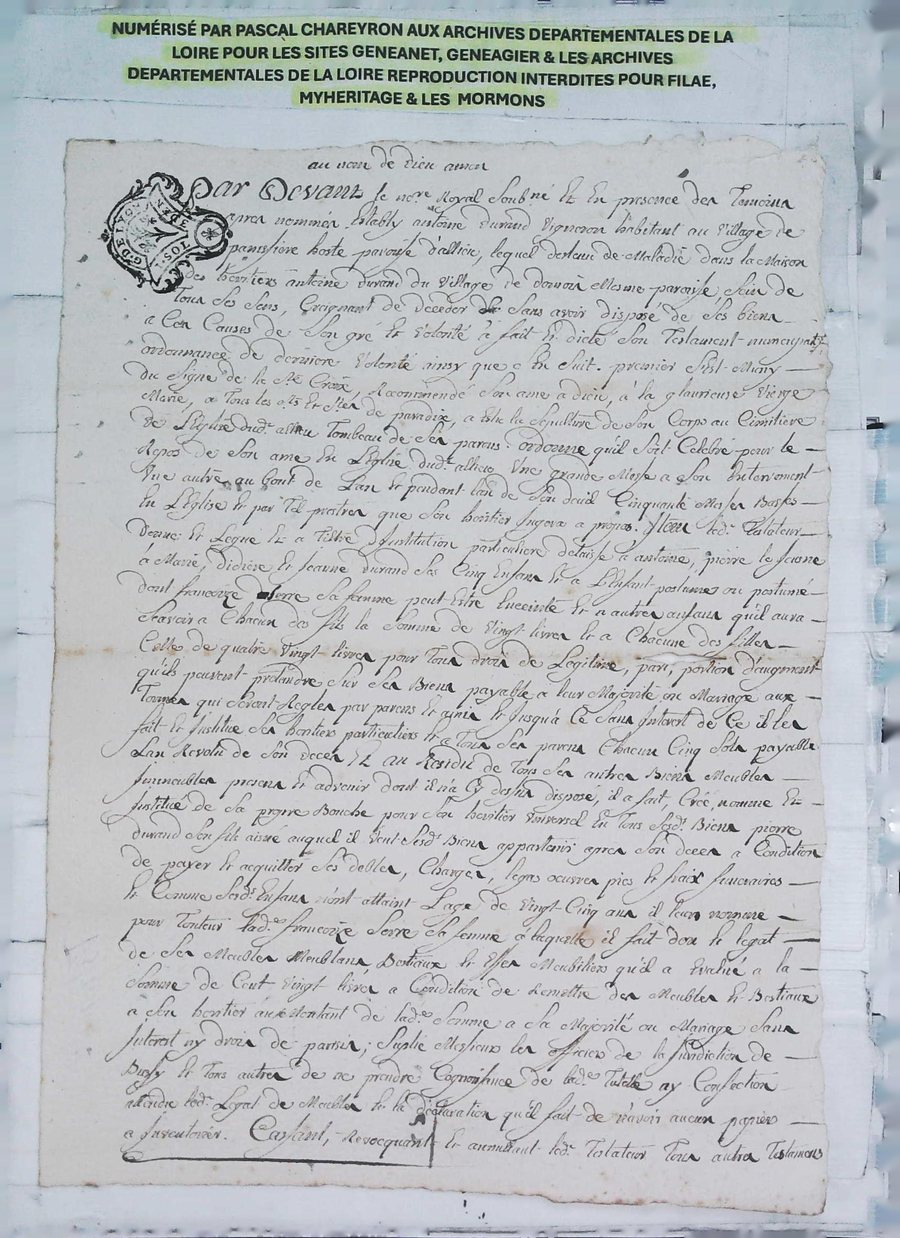 NUMÉRISÉ PAR PASCAL CHAREYRON AUX ARCHIVES DEPARTEMENTALES DE LA
LOIRE POUR LES SITES GENEANET, GENEAGIER & LES ARCHIVES
DEPARTEMENTALES DE LA LOIRE REPRODUCTION INTERDITES POUR FILAE,
MYHERITAGE & LES MORMONS
au nom de Dieu amen
Par Devant le no.re Royal Soubné Et En presence des Temoins
apres nommés Etably antoine durand Vigneron habitant au Village de
paroisse d'allieu, lequel detenu de Maladie dans la Maison
des heritiers antoine durand du Village de Mesme paroisse, Sein de
Tous Ses Sens, Craignant de deceder Sans avoir disposé de Ses biens
a Ces Causes de Son gré Et Volonté a fait Et dicté Son Testament nuncupatif
ordonnance de derniere Volonté ainsy que s'En Suit. premier S'est Muny
du Signe de la Ste Croix, Recommendé Son ame a dieu, a la glorieuse Vierge
Marie, a Tous les Sts Et Stes de paradix, a Eslu la Sepulture de Son Corps au Cimitiere
de L'Eglise dud. allieu Tombeau de Ses parens ordonne qu'il Soit Celebré pour le
Repos de Son ame En L'Eglise dud. allieu Une grande Messe a Son Enterrement
Une autre au bout de L'an Et pendant L'an de Son deuil Cinquante Messes Basses
En L'Eglise Et par Tel prestres que Son heritier Jugera a propos. Item led. Testateur
Donne Et Legue Et a Tiltre d'Institution particuliere delaisse a antoine, pierre le Jeune
a Marie, Et Jeanne durand Ses Cinq Enfans Et a L'Enfant postumes ou postume
dont francoize Serre Sa femme peut Estre Enceinte Et autres enfans qu'il aura
Scavoir a Chacun des fils la Somme de Vingt livres Et a Chacune des filles
Celle de quatre Vingt livres pour Tous droits de Legitime, part, portion d'augment
qu'ils peuvent pretandre Sur Ses Biens payable a leur Majorité ou Mariage aux
Termes qui Seront Regles par parens Et amis Et Jusqu'a Ce Sans Interest de Ce il les
fait Et Institue Ses heritiers particuliers Et a Tous Ses parens Chacun Cinq Sols payable
L'an Revolu de Son deces Et au Residu de Tous Ses autres Biens Meubles
Immeubles presens Et advenir dont il n'a Cy dessus disposé, il a fait, Créé, nommé Et
Institué de Sa propre Bouche pour Son heritier Universel En Tous Sesd. Biens pierre
durand Son fils aisné auquel il Veut Sesd. Biens appartenir apres Son deces a Condition
de payer Et acquitter Ses debtes, Charges, legas oeuvres pies Et fraix funeraires
Et Comme Sesd. Enfans n'ont attaint L'age de Vingt Cinq ans il leur nomme
pour Tuteur lad. francoize Serre Sa femme a laquelle il fait don Et legat
de Ses Meubles Meublans, Bestiaux Et Mobiliers qu'il a Evalué a la
Somme de Cent Vingt livres a Condition de Remettre des Meubles Et Bestiaux
a Son heritier au Montant de lad. Somme a Sa Majorité ou Mariage Sans
Interest ny droit de ; Suplie Messieurs les officiers de la Juridiction de
Bussy Et Tous autres de ne prendre Cognoissance de lad. Tutelle ny Confection
attendu led. Legat de Meubles Et la declaration qu'il fait de n'avoir aucun papiers
a Inventorier. Cassant, Revocquant Et annullant led. Testateur Tous autres Testamens